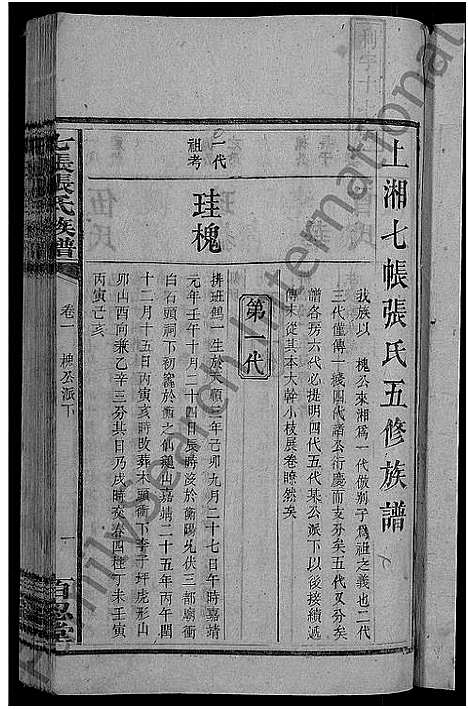 上湘七帳張氏五修族譜
我族以 槐公來湘爲一代倣別子爲祖之義也二代
三代僅傳一綫四代諸公衍慶而支分矣五代又分矣
譜各房六代必提明四代五代某公派下以後接續遞
傳末從其本大幹小枝展卷瞭然矣
第一代
一代
祖考
珪槐
拼班鶴一生於天順三年己卯九月二十七日午時嘉靖
元年壬午十月二十四日辰時沒於衡陽九伏三部廟衝
白石頭祠下初窆於衡之仙鎚山嘉靖二十五年丙午閏
十二月十五日丙寅亥時改葬木頭衝下李子坪虎形山
卯山酉向兼乙辛三分其日乃戌時交春四柱丁未壬寅
丙寅己亥
七張張氏族譜
卷一
槐公派下
一
百忍堂
FamilySearch International